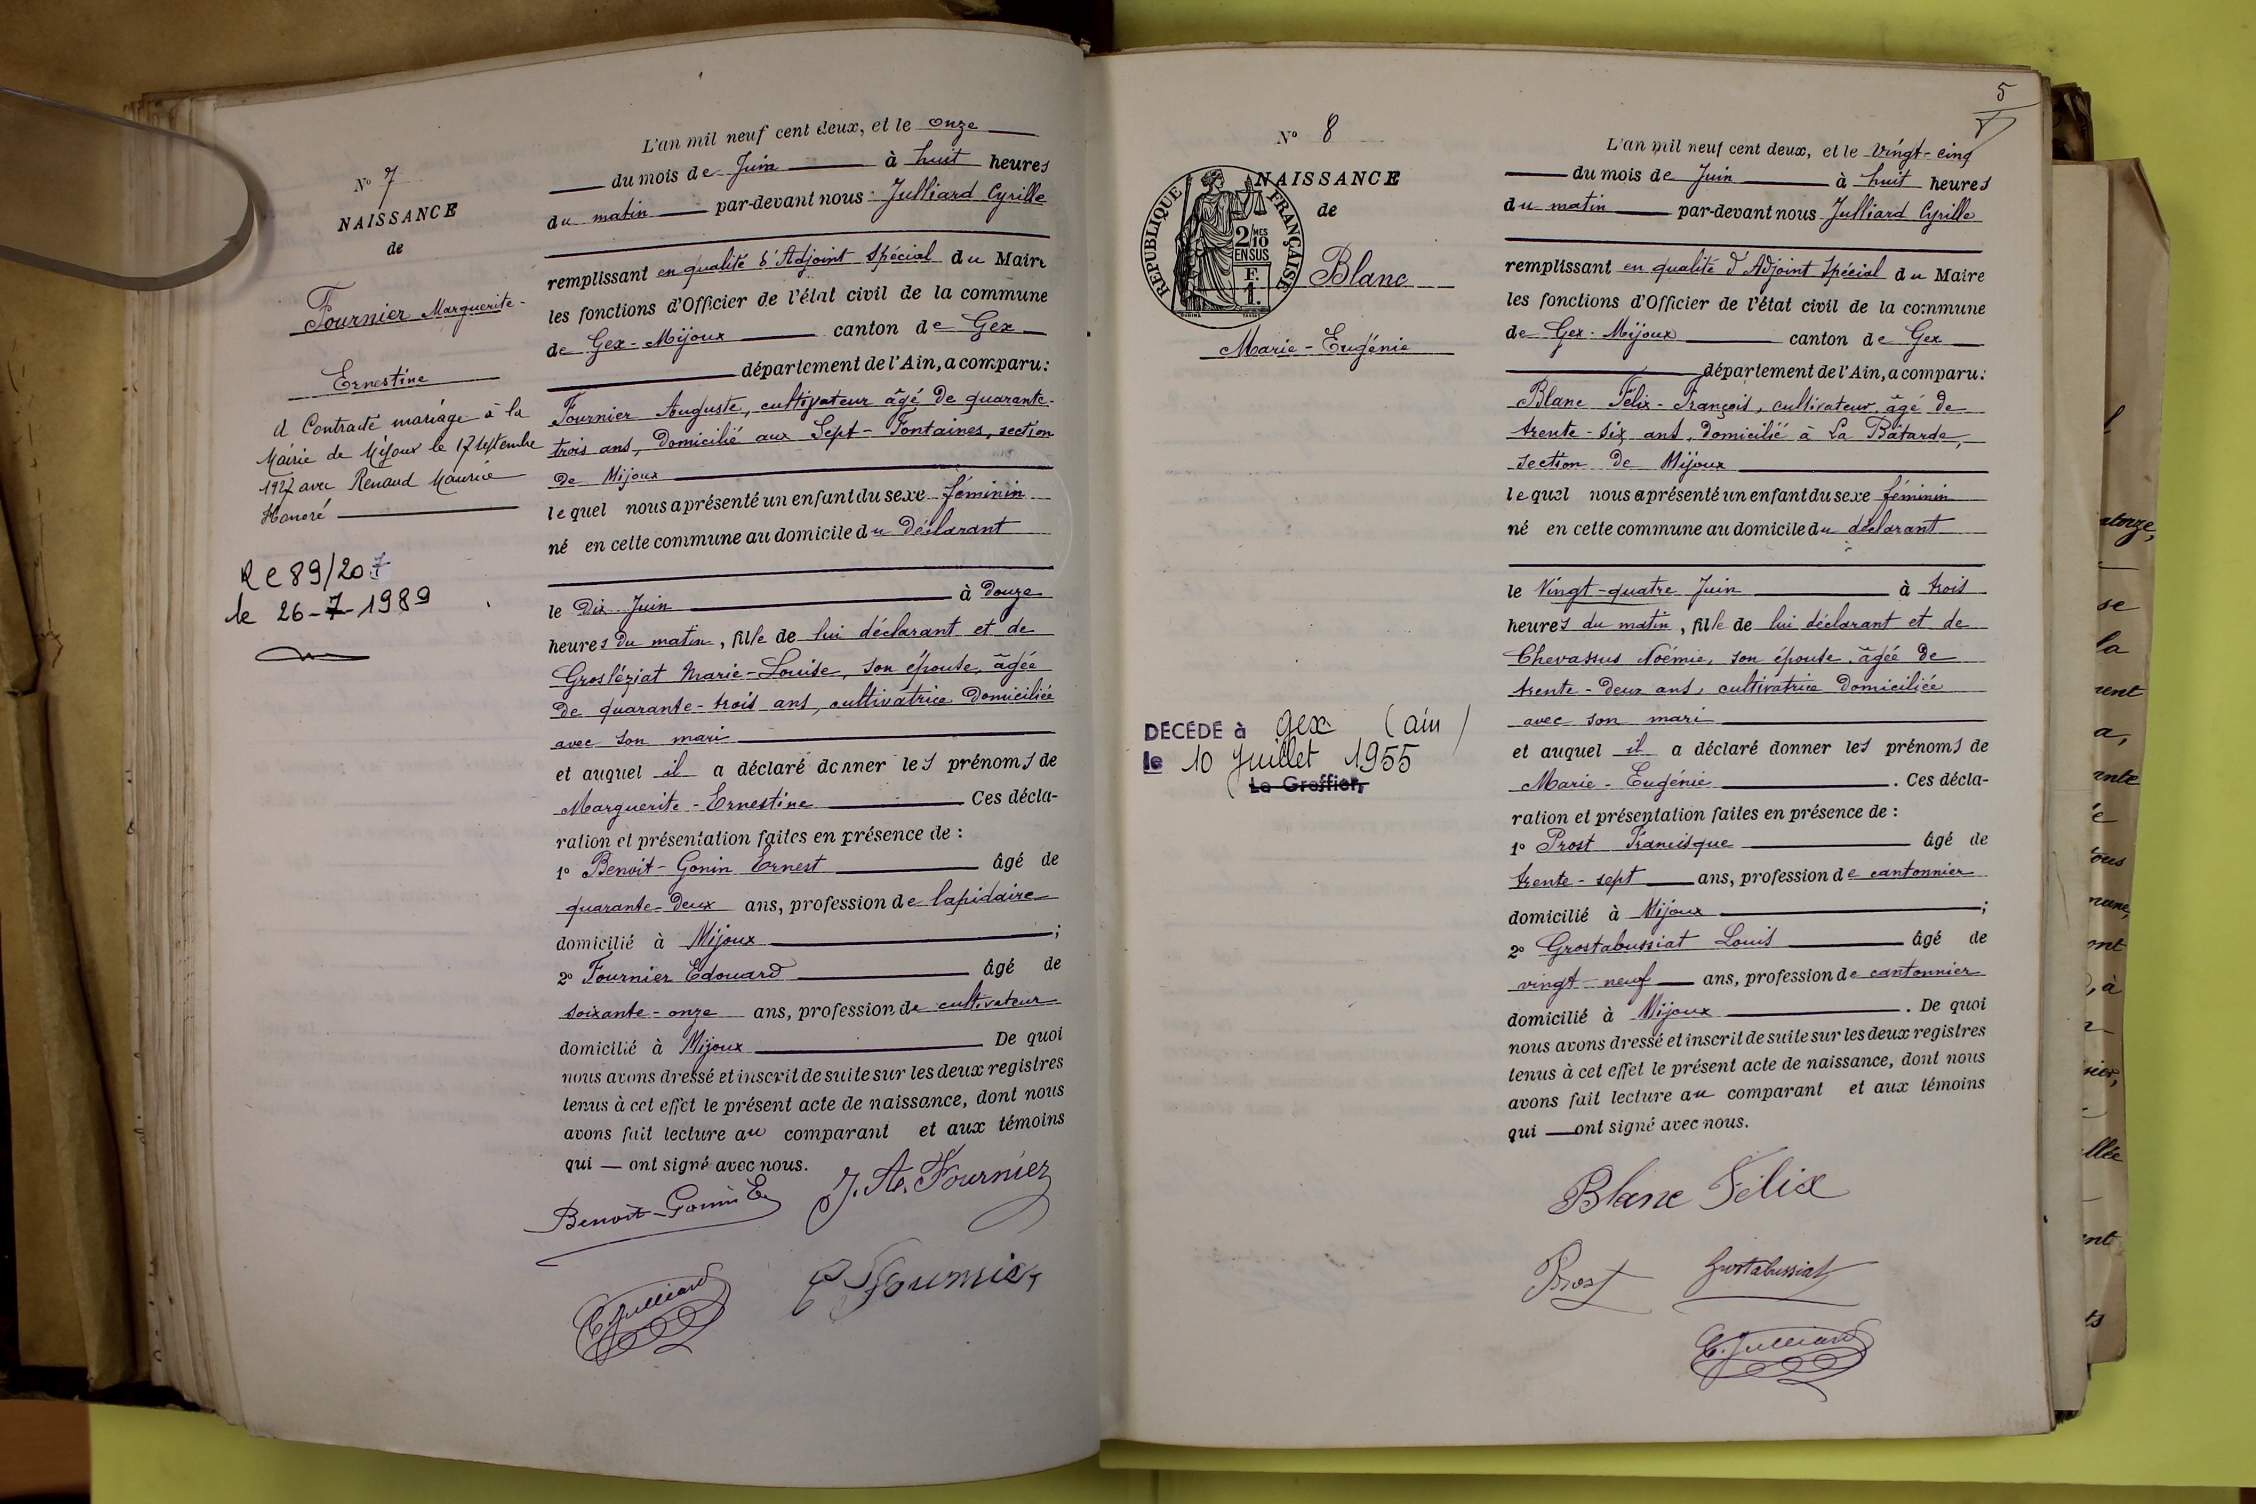 N° 7
NAISSANCE
de
Fournier Marguerite-
Ernestine
Contracté mariage à la
Mairie de Mijoux le 17 septembre
1927 avec Renaud Maurice
Honoré
RC 89/207
le 26-7-1989
L'an mil neuf cent deux, et le onze
du mois de Juin à huit heures
du matin par-devant nous Julliard Cyrille
remplissant en qualité d'Adjoint spécial du Maire
les fonctions d'Officier de l'état civil de la commune
de Gex-Mijoux canton de Gex
département de l'Ain, a comparu:
Fournier Auguste, cultivateur âgé de quarante-
trois ans, domicilié aux Sept-Fontaines, section
de Mijoux
lequel nous a présenté un enfant du sexe féminin
né en cette commune au domicile du déclarant
le dix Juin à douze
heures du matin, fille de lui déclarant et de
Marie-Louise, son épouse, âgée
de quarante-trois ans, cultivatrice domiciliée
avec son mari
et auquel il a déclaré donner les prénoms de
Marguerite-Ernestine Ces décla-
ration et présentation faites en présence de :
1° Benoit-Gonin Ernest âgé de
quarante-deux ans, profession de lapidaire
domicilié à Mijoux ;
2° Fournier Edouard âgé de
soixante-onze ans, profession de cultivateur
domicilié à Mijoux De quoi
nous avons dressé et inscrit de suite sur les deux registres
tenus à cet effet le présent acte de naissance, dont nous
avons fait lecture au comparant et aux témoins
qui — ont signé avec nous.
Benoit-Gonin E J. A. Fournier
C. Julliard E Fournier
5
N° 8
NAISSANCE
de
RÉPUBLIQUE FRANÇAISE
2/10 MES
EN SUS
F.
1.
Blanc
Marie-Eugénie
DÉCÉDÉ à Gex (Ain)
le 10 Juillet 1955
Le Greffier,
L'an mil neuf cent deux, et le vingt-cinq
du mois de Juin à huit heures
du matin par-devant nous Julliard Cyrille
remplissant en qualité d'Adjoint spécial du Maire
les fonctions d'Officier de l'état civil de la commune
de Gex-Mijoux canton de Gex
département de l'Ain, a comparu:
Blanc Félix-François, cultivateur, âgé de
trente-six ans, domicilié à La Bâtarde,
section de Mijoux
lequel nous a présenté un enfant du sexe féminin
né en cette commune au domicile du déclarant
le Vingt-quatre Juin à trois
heures du matin, fille de lui déclarant et de
Chevassus Noémie, son épouse, âgée de
trente-deux ans, cultivatrice domiciliée
avec son mari
et auquel il a déclaré donner les prénoms de
Marie-Eugénie . Ces décla-
ration et présentation faites en présence de :
1° Prost Francisque âgé de
trente-sept ans, profession de cantonnier
domicilié à Mijoux ;
2° Grostabussiat Louis âgé de
vingt-neuf ans, profession de cantonnier
domicilié à Mijoux . De quoi
nous avons dressé et inscrit de suite sur les deux registres
tenus à cet effet le présent acte de naissance, dont nous
avons fait lecture au comparant et aux témoins
qui — ont signé avec nous.
Blanc Félix
Prost Grostabussiat
C. Julliard